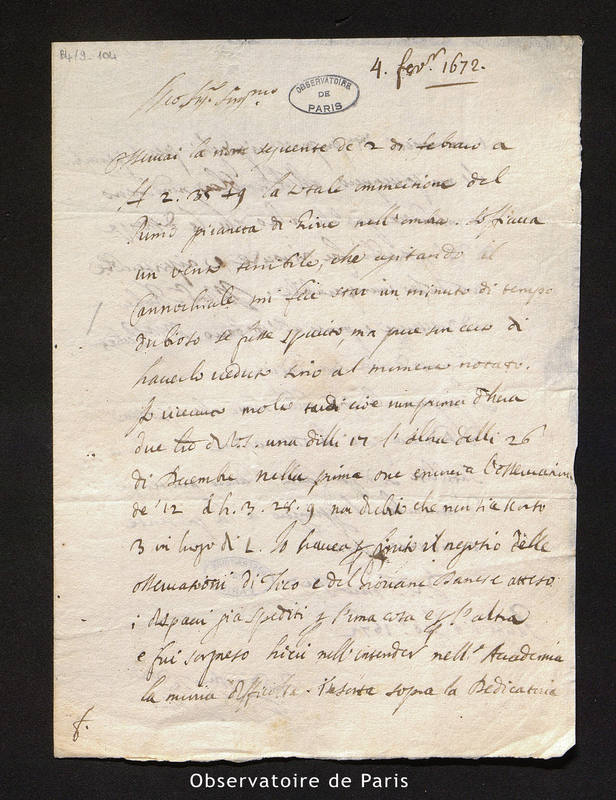 B4/9-104
4. fevr. 1672.
OBSERVATOIRE
DE
PARIS
la notte seguente de 2 di febraro a
H 2. 35 49 la totale immersione del
Primo pianeta di Giove nell'ombra. Soffiava
un vento sensibile, che agitando il
Cannochiale mi fece star un minuto di tempo
dubioso se fosse sparito, ma pure son certo di
haverlo veduto sino al momento notato.
Io ricevei molto tardi cioè non prima d'hera
due di V.S. una delli 17 l'altra delli 26
di Decembre nella prima ove enuncia l'osservatione
de' 12 d h. 3. 28. 9 non dubito che non sia scorso
3 in luogo di 2. Io haveva finito il negotio delle
osservationi di Ticone e del giovane Danese atteso
i dispacci già spediti p l'una cosa e p l'altra
e fui sorpreso hieri nell'intender nell'Accademia
la nuova difficoltà insorta sopra la Dedicatoria
f.
Observatoire de Paris